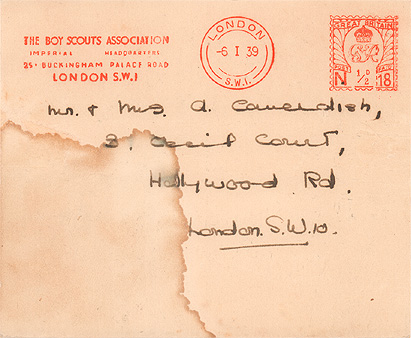 THE BOY SCOUTS ASSOCIATION
IMPERIAL HEADQUARTERS
25, BUCKINGHAM PALACE ROAD
LONDON S.W.1
LONDON
-6 I 39
S.W.1.
GREAT BRITAIN
POSTAGE PAID
N ½D 18
Mr. & Mrs A. Cavendish,
3. Cecil Court,
Hollywood Rd.
London. S.W.10.